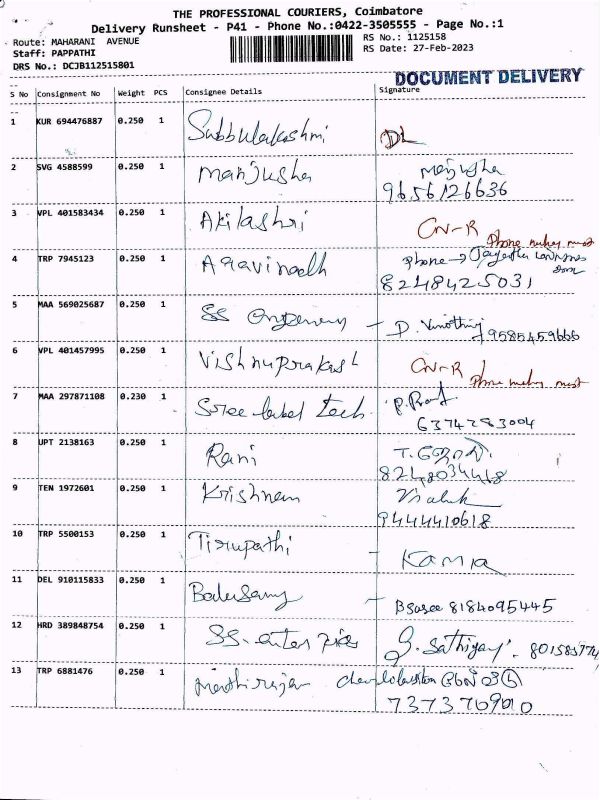 THE PROFESSIONAL COURIERS, Coimbatore
Delivery Runsheet - P41 - Phone No.:0422-3505555 - Page No.:1
Route: MAHARANI AVENUE
Staff: PAPPATHI
DRS No.: DCJB112515801
RS No.: 1125158
RS Date: 27-Feb-2023
DOCUMENT DELIVERY
S No Consignment No Weight PCS Consignee Details Signature
1 KUR 694476887 0.250 1 Subbulakashmi DL
2 SVG 4588599 0.250 1 Manjusha Manjusha
9656126636
3 VPL 401583434 0.250 1 Akilashri CN-R
Phone
4 TRP 7945123 0.250 1 Aravinadh Phone →
8248425031
5 MAA 569025687 0.250 1 SS - D. 9585459666
6 VPL 401457995 0.250 1 Vishnuprakash CN-R
Phone
7 MAA 297871108 0.230 1 Sree label Tech P.
6374283004
8 UPT 2138163 0.250 1 Rani
9 TEN 1972601 0.250 1 Krishnan
9444410618
10 TRP 5500153 0.250 1 Tirupathi -
11 DEL 910115833 0.250 1 Balusamy - 8184095445
12 HRD 389848754 0.250 1 SS. S. Sathiya
13 TRP 6881476 0.250 1